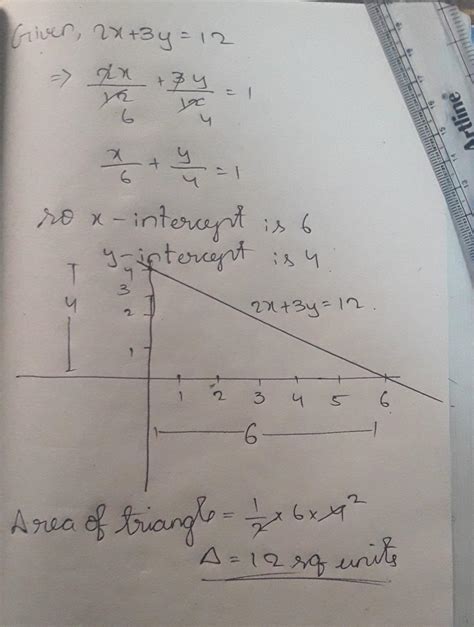 Given, 2x+3y=12
⇒ 2x/12 + 3y/12 = 1
6 4
x/6 + y/4 = 1
so x-intercept is 6
y-intercept is 4.
4
3
2
1
4
2x+3y=12.
1 2 3 4 5 6
6
Area of triangle = 1/2 × 6 × 4 2
Δ = 12 sq units
Artline